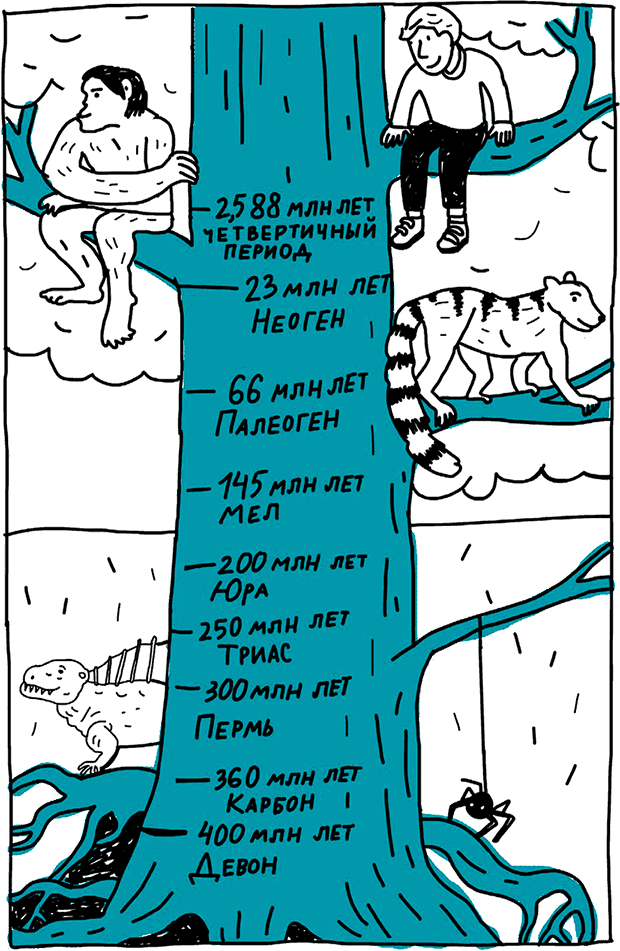 2,588 млн лет
четвертичный
период
23 млн лет
Неоген
66 млн лет
Палеоген
145 млн лет
мел
200 млн лет
Юра
250 млн лет
Триас
300 млн лет
Пермь
360 млн лет
Карбон
400 млн лет
Девон